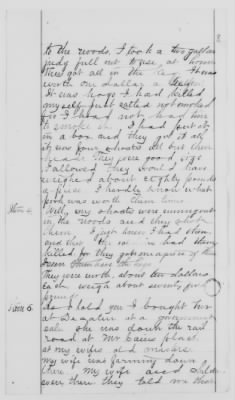 to the woods. I took a two gallon
jug full out to use, at home
They got all in the keg. It was
worth one dollar a gallon.
It was hogs I had killed
myself just salted not smoked
for I had not had time
to smoke it. I had put it
in a box and they got it all
it was four shoats all but their
heads. They were good size
I allowed they would have
weighed about eighty pounds
a piece. I hardly know what
pork was worth then times
Item 4. Well, my shoats were running out
in the woods and they shot
them. I just knew I had them
and that the soldiers had them
killed for they got some pieces of them
They were worth about ten dollars
each, weigh about seventy five
pounds
Item 5. As I told you I bought her
at Decatur at a government
sale she was down the rail
road at Mr place
at my wife's old
my wife was farming down
there. My wife and
were there they told me that